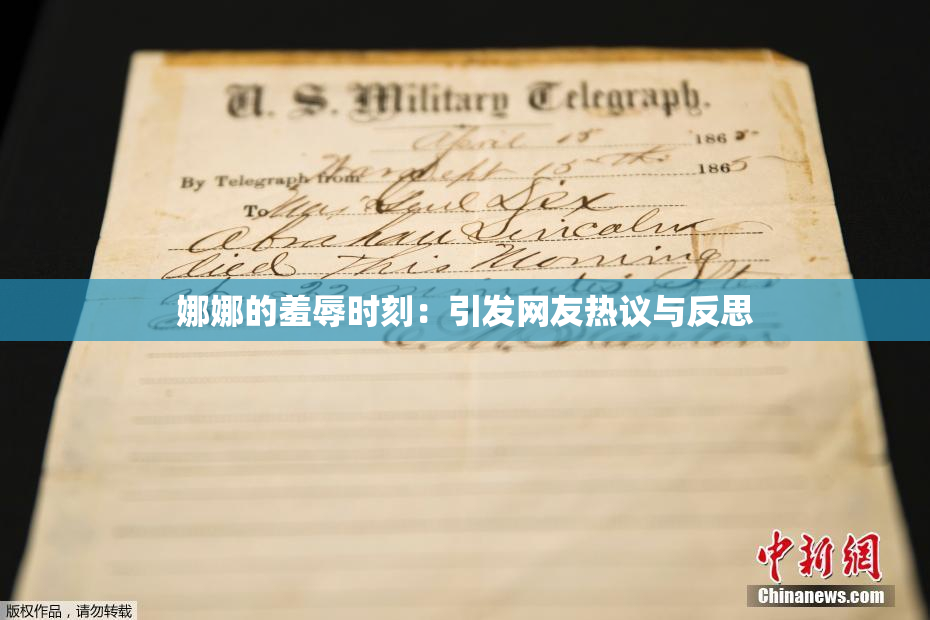 U. S. Military Telegraph.
April 15 1865
By Telegraph from War Dept 15th 1865
To Maj Genl Dix
Abraham Lincoln
died This Morning
22 minutes after
娜娜的羞辱时刻：引发网友热议与反思
E. M. Stanton
中新网
Chinanews.com
版权作品，请勿转载